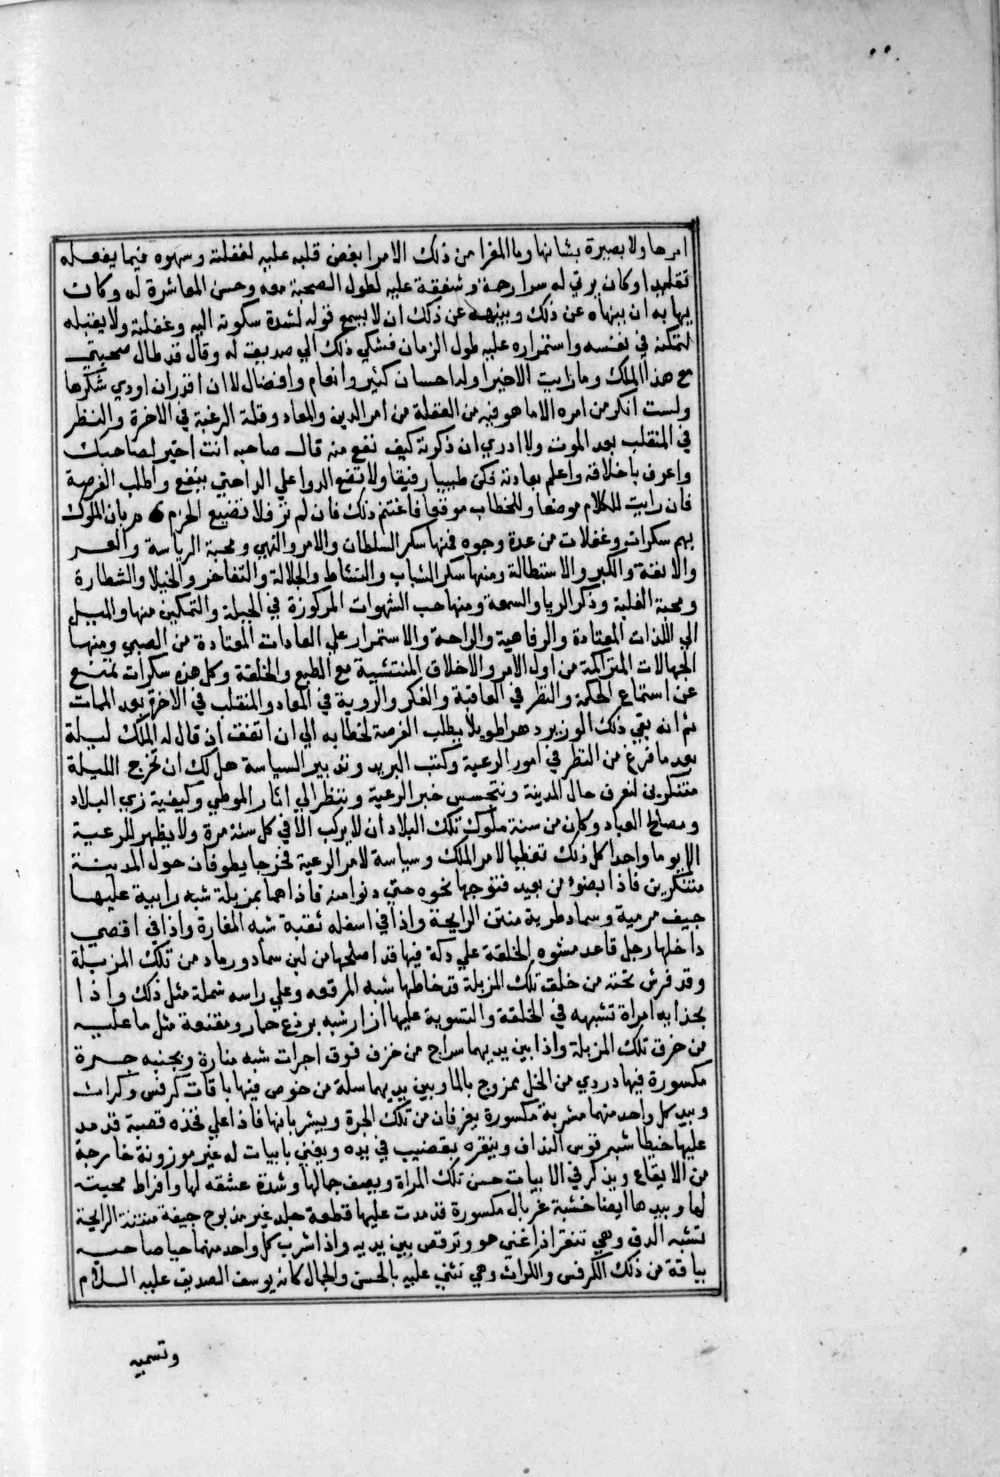 امرها ولا بصيرة بشانها وما المغزا من ذلك الامر ابغض قلبه عليه لغفلته وسهوه فيما يفعله
تقليدا وكان يرثي له سرا رحمة وشفقة عليه لطول الصحبة معه وحسن المعاشرة له وكان
يهابه ان ينهاه عن ذلك وينبهه عن ذلك ان لا يسمع قوله لشدة سكونه اليه وغفلته ولا يقبله
لتمكنه في نفسه واستمراره عليه طول الزمان فشكي ذلك الي صديق له وقال قد طال صحبتي
مع هذا الملك وما رايت الا خيرا وله احسان كثير وانعام وافضال لا ان اقدر ان اودي شكرها
ولست انكر من امره الا ما هو فيه من الغفلة من امر الدين والمعاد وقلة الرغبة في الاخرة والنظر
في المنقلب بعد الموت ولا ادري ان ذكرته كيف نفع منه قال صاحبه انت اخبر لصاحبك
واعرف باخلاقه واعلم بعادته فكن طبيبا رفيقا ولا تضع الدوا علي الدا حتي ينفع واطلب الفرصة
فان رايت للكلام موضعا وللخطاب موقعا فاغتنم ذلك فان لم تر فلا تضييع الحزم بان الملوك
بهم سكرات وغفلات من عدة وجوه فمنها سكر السلطان والامر والنهي ومحبة الرياسة والعز
والانفة والكبر والاستطالة ومنها سكر الشباب والنشاط والجلالة والتفاخر والخيلا والشطارة
ومحبة الغلبة وذكر الريا والسمعة ومنها حب الشهوات المركوزة في الجبلة والتمكين منها والميل
الي اللذات المعتادة والرفاهية والراحة والاستمرار علي العادات المعتادة من الصبي ومنها
الجهالات المتراكمة من اول الامر والاخلاق المنتشية مع الطبع والخلقة وكل هذه سكرات تمنع
عن استماع الحكمة والنظر في العاقبة والفكر والروية في المعاد والمنقلب في الاخرة بعد الممات
ثم انه بقي ذلك الوزير دهرا طويلا يطلب الفرصة لخطابه الي ان اتفقت ان قال له الملك ليلة
بعد ما فرغ من النظر في امور الرعية وكتب البريد وتدبير السياسة هل لك ان نخرج الليلة
متنكرين لنعرف حال المدينة ونتجسس خبر الرعية وننظر الي اثار الموطي وكيفية زي البلاد
ومصالح العباد وكان من سنة ملوك تلك البلاد ان لا يركب الا في كل سنة مرة ولا يظهر للرعية
الا يوما واحدا كل ذلك تعظيما لامر الملك وسياسة لامر الرعية فخرجا يطوفان حول المدينة
متنكرين فاذا بضوء من بعيد فتوجها نحوه حتي دنوا منه فاذا هما بمزبلة شبه رابية عليها
جيف مرمية وسماد طرية منتن الرايحة واذا في اسفله ثقبة شبه المغارة واذا في اقصي
داخلها رجل قاعد مشوه الخلقة علي دكة فيها قد اصلحها من لبن سماد ورماد من تلك المزبلة
وقد فرش تحته من خلق تلك المزبلة قد خاطها شبه المرقعه وعلي راسه شملة مثل ذلك واذا
بحذايه امراة تشبهه في الخلقة والتسوية عليها ازار شبه برذع حمار ومقنعة مثل ما عليه
من خرق تلك المزبلة واذا بين يديهما سراج من خزف فوق اجرات شبه منارة وبجنبه جرة
مكسورة فيها دردي من الخل ممزوج بالما وبين يديهما سلة من خوص فيها باقات كرفس وكرات
وبيد كل واحد منهما مشربة مكسورة يغرفان من تلك الجرة ويشربانها فاذا علي فخذه قصبة قد مد
عليها خيطا شبه قوس النداف وينقره بقضيب في يده ويغني بابيات له غير موزونة خارجة
من الايقاع ويذكر في الابيات حسن تلك المراة ويصف جمالها وشدة عشقه لها وافراط محبته
لها وبيدها ايضا خشبة غربال مكسورة قد مدت عليها قطعة جلد غير مذبوح جيفة منتنة الرايحة
تشبه الدف وهي تنقر اذا غني هو وترقص بين يديه واذا شرب كل واحد منهما حيا صاحبه
بباقة من ذلك الكرفس والكراث وهي تثني عليه بالحسن والجمال كانه يوسف الصديق عليه السلام
وتسميه